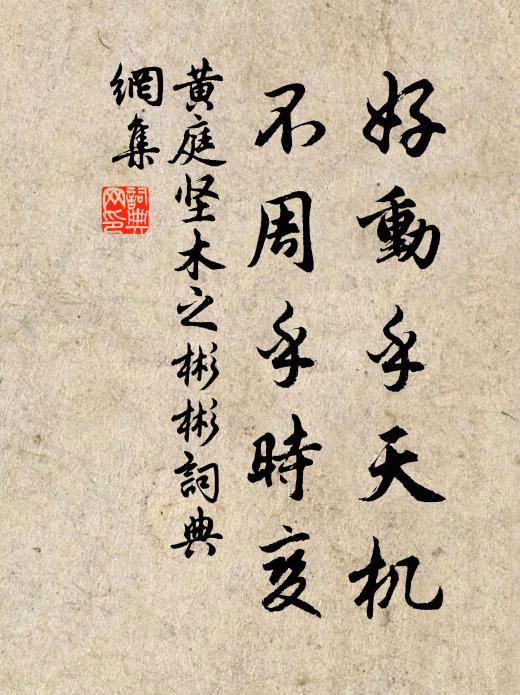 好動乎天机
不周乎時变
黄庭坚木之彬彬詞典
網集
詞典
网印